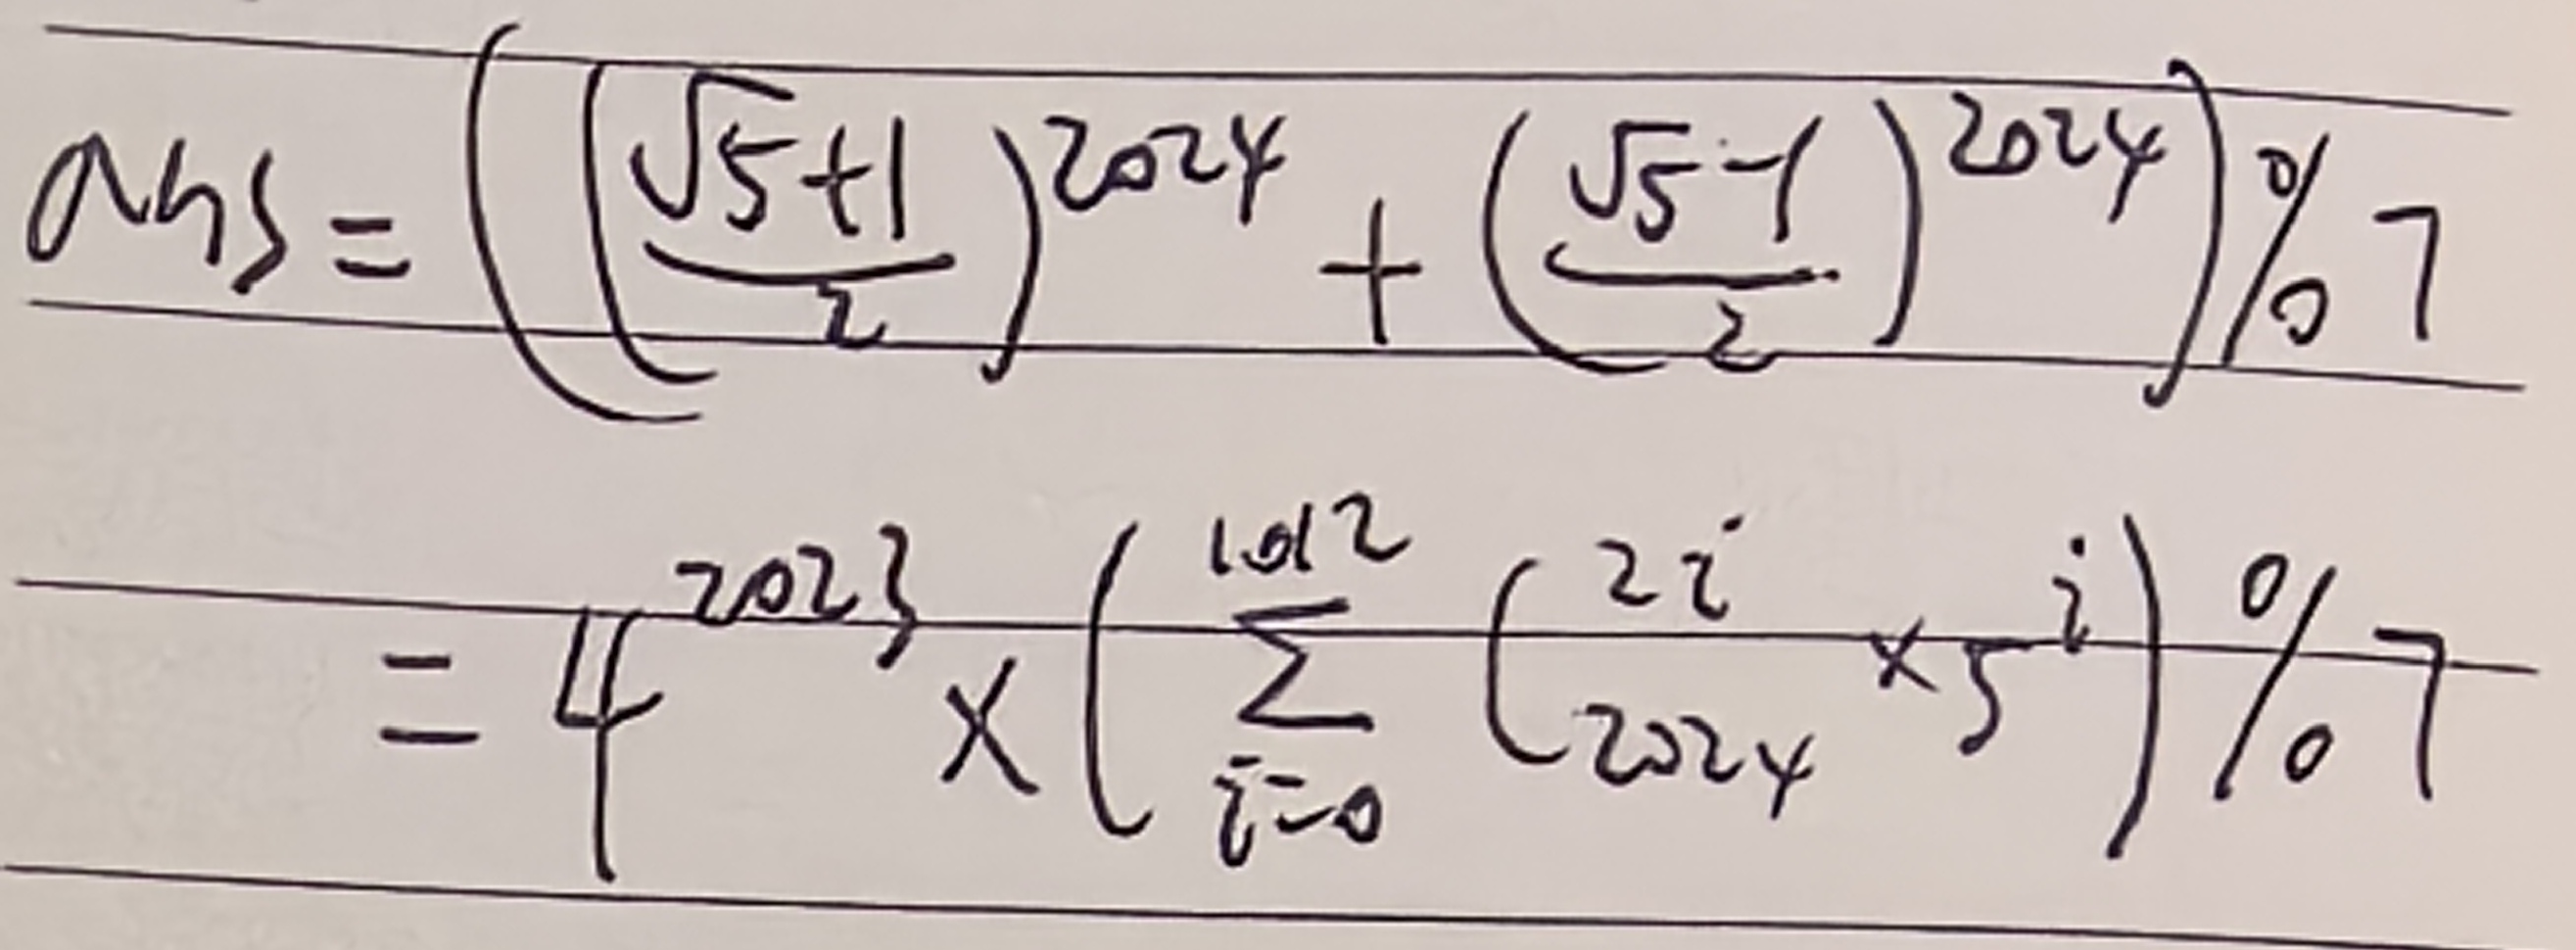 ans = ((√5+1 / 2)^2024 + (√5-1 / 2)^2024) % 7
= 4^2023 × (∑_{i=0}^{1012} (2i 2024 × 5^i) % 7